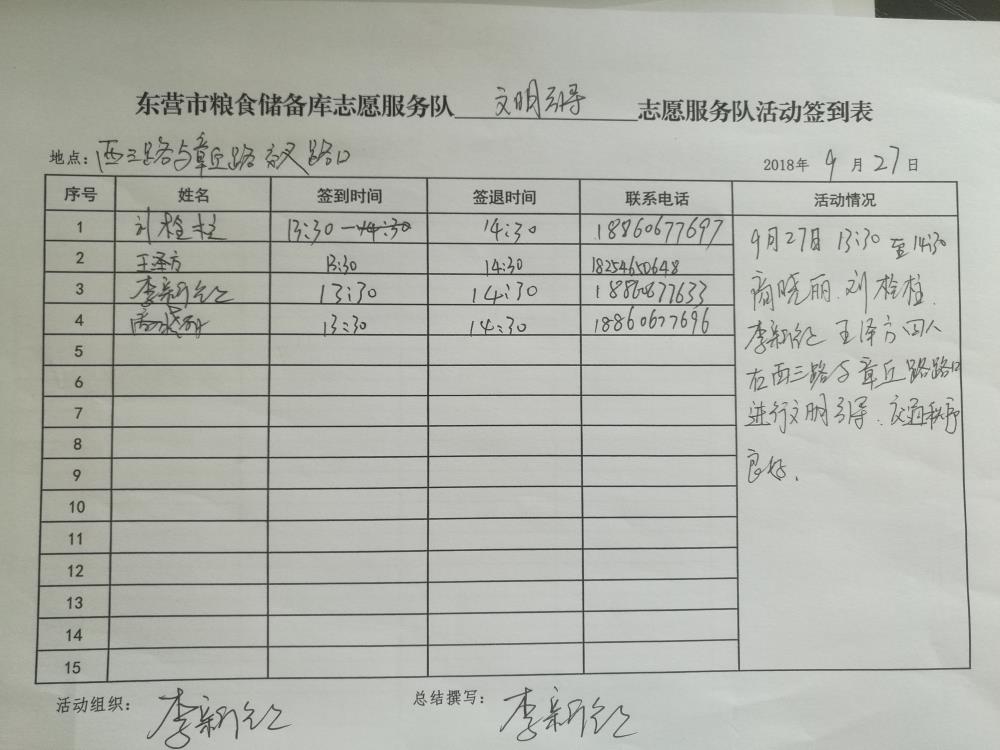 东营市粮食储备库志愿服务队 文明引导 志愿服务队活动签到表
地点：西三路与章丘路交叉路口 2018年 9 月 27 日
序号 姓名 签到时间 签退时间 联系电话 活动情况
1 刘栓柱 13:30 14:30 18860677697
2 王泽方 13:30 14:30 18254650648
3 李新红 13:30 14:30 18860677633
4 商晓丽 13:30 14:30 18860677696
5
6
7
8
9
10
11
12
13
14
15
9月27日 13:30 至 14:30
商晓丽、刘栓柱、
李新红 王泽方四人
在西三路与章丘路路口
进行文明引导、交通秩序
良好、
活动组织：李新红 总结撰写：李新红